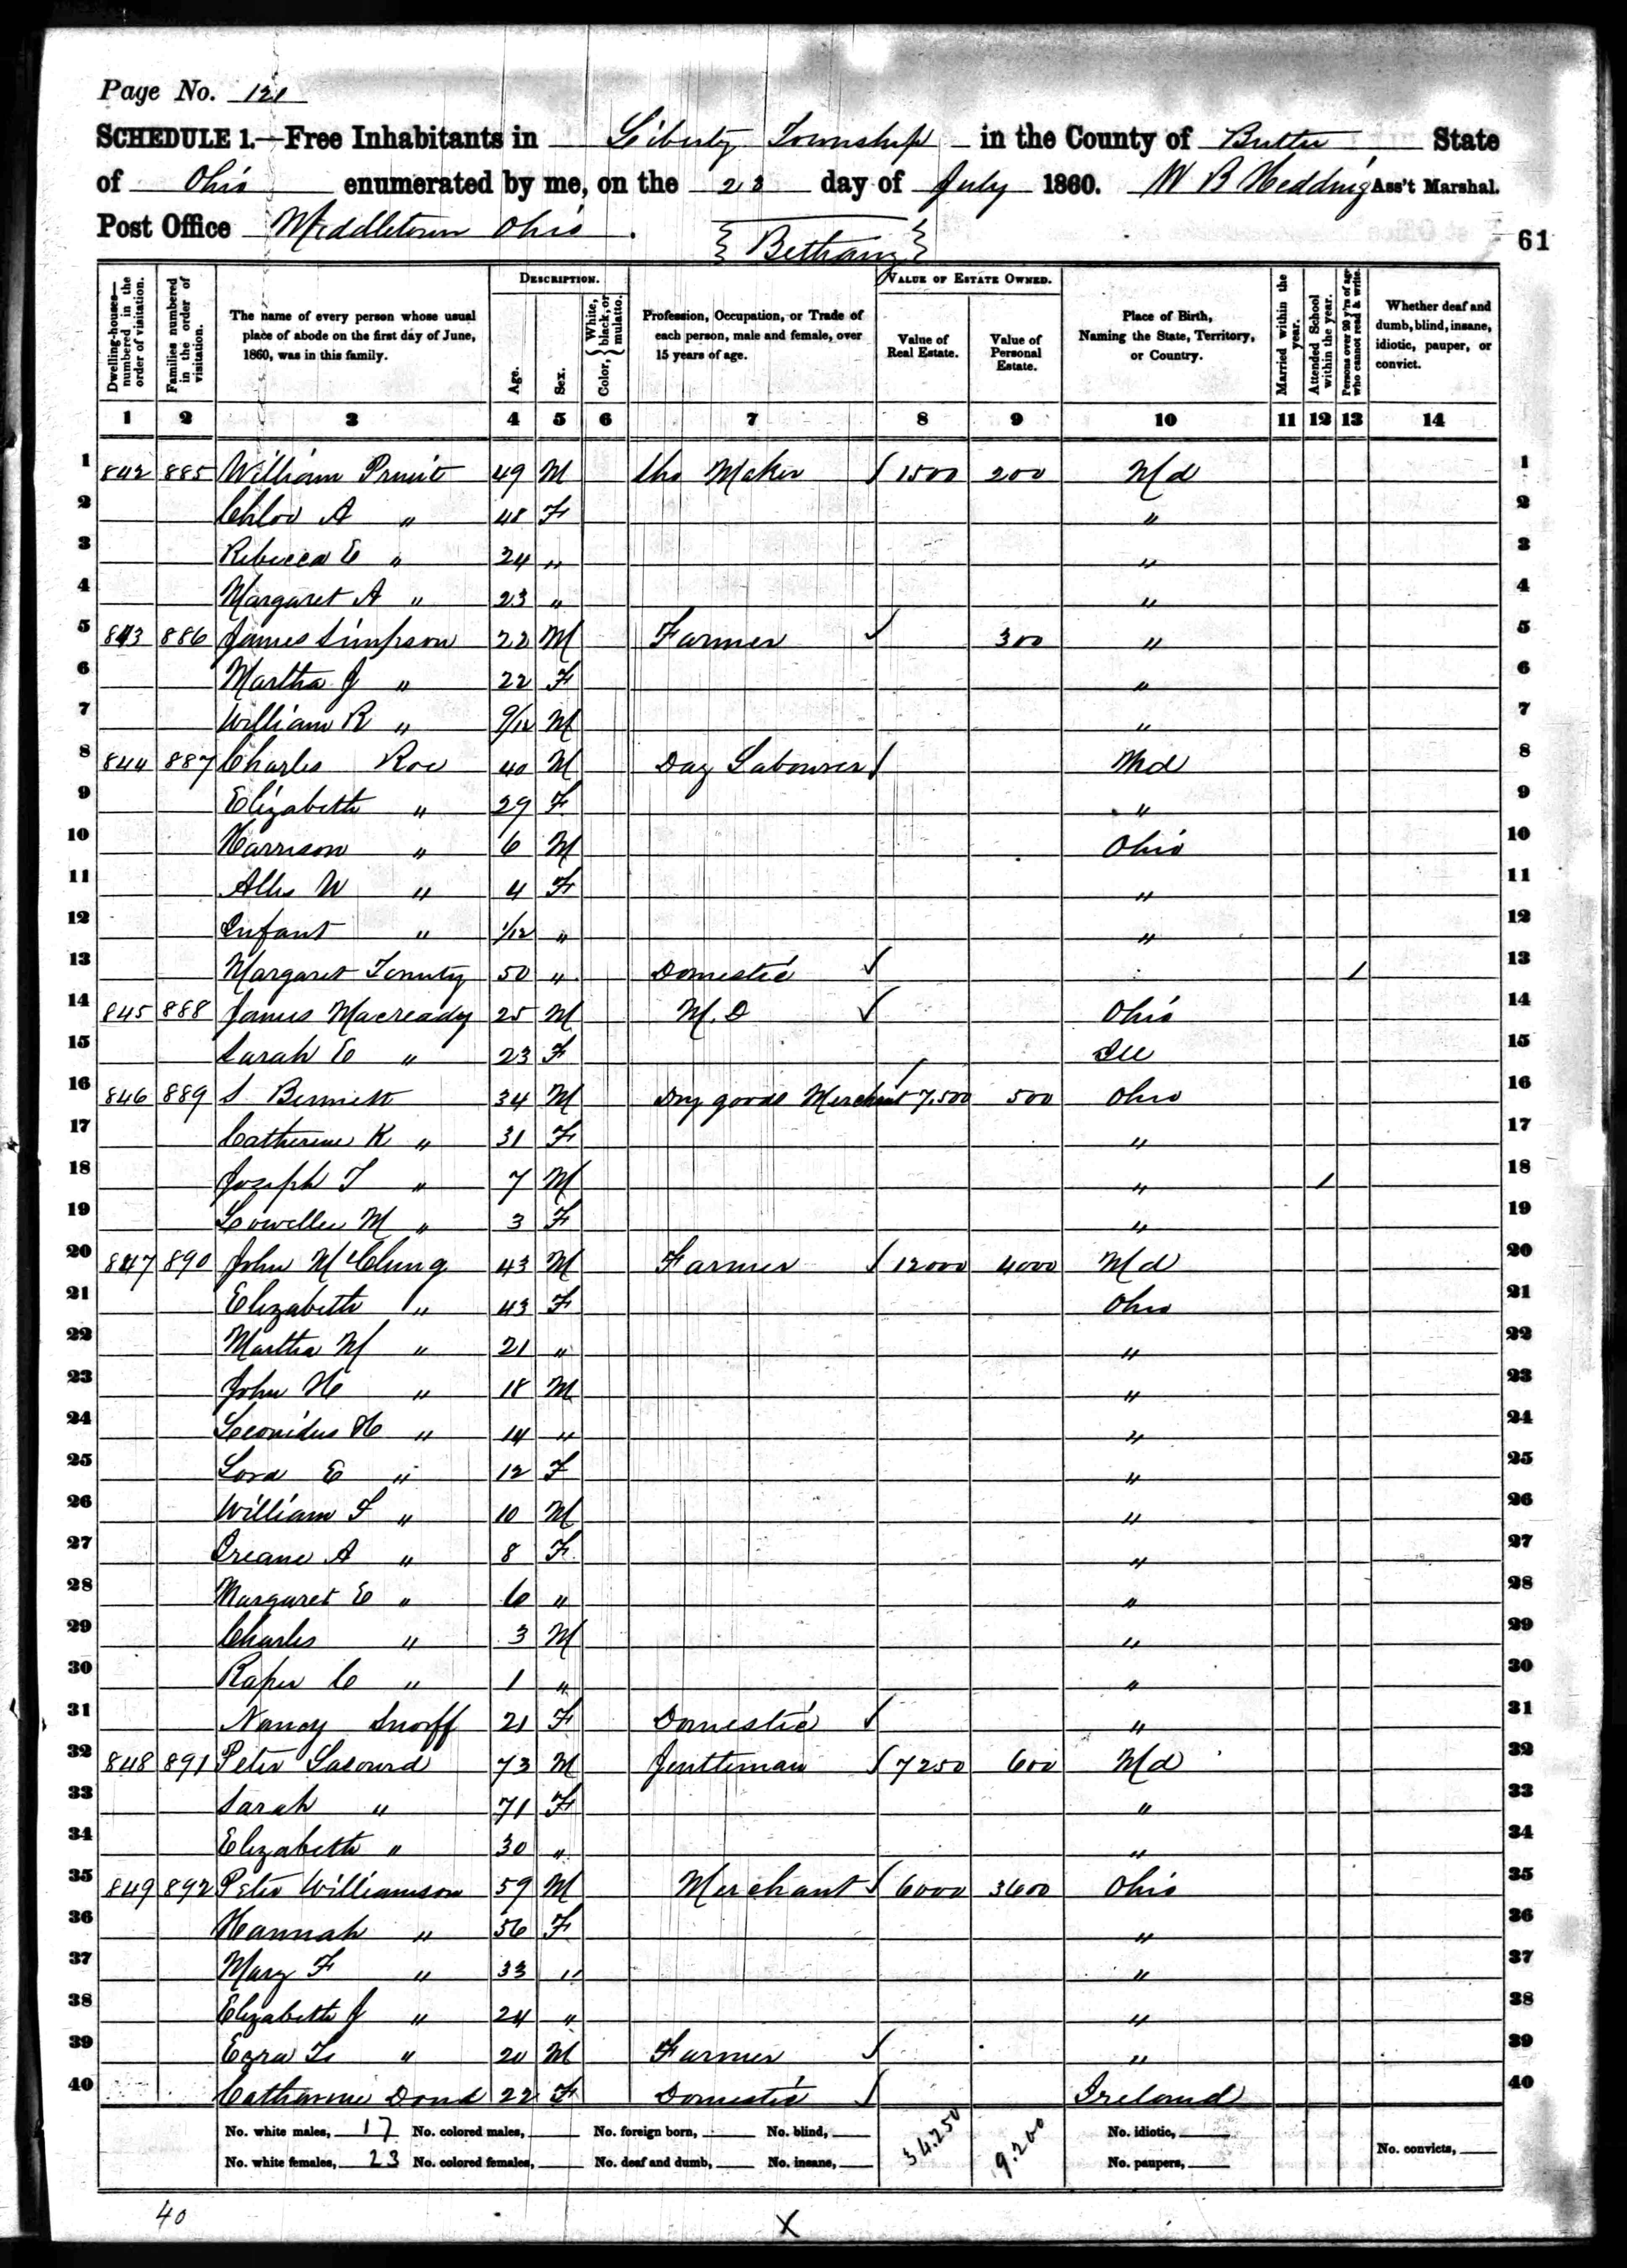 Page No. 121
SCHEDULE 1.—Free Inhabitants in Liberty Township in the County of Butler State
of Ohio enumerated by me, on the 23 day of July 1860. W B Hedding Ass't Marshal.
Post Office Middletown Ohio. { Bethany } 61
Dwelling-houses—numbered in the order of visitation. Families numbered in the order of visitation. The name of every person whose usual place of abode on the first day of June, 1860, was in this family. DESCRIPTION. Age. Sex. Color, { White, black, or mulatto. Profession, Occupation, or Trade of each person, male and female, over 15 years of age. VALUE OF ESTATE OWNED. Value of Real Estate. Value of Personal Estate. Place of Birth, Naming the State, Territory, or Country. Married within the year. Attended School within the year. Persons over 20 y'rs of age who cannot read & write. Whether deaf and dumb, blind, insane, idiotic, pauper, or convict.
1 2 3 4 5 6 7 8 9 10 11 12 13 14
1 842 885 William Pruit 49 M Sho Maker / 1500 200 Md 1
2 Chloe A " 48 F " 2
3 Rebecca E " 24 " " 3
4 Margaret A " 23 " " 4
5 843 886 James Simpson 22 M Farmer ✓ 300 " 5
6 Martha J " 22 F " 6
7 William R " 9/12 M " 7
8 844 887 Charles Roe 40 M Day Labourer / Md 8
9 Elizabeth " 29 F " 9
10 Harrison " 6 M Ohio 10
11 Alles W " 4 F " 11
12 Infant " 1/12 " " 12
13 Margaret 50 " Domestic ✓ / 13
14 845 888 James Macready 25 M M. D ✓ Ohio 14
15 Sarah E " 23 F Ill 15
16 846 889 S Bennett 34 M Dry goods Merchant / 7,500 500 Ohio 16
17 Catherine K " 31 F " 17
18 Joseph T " 7 M " / 18
19 Lowellee M " 3 F " 19
20 847 890 John McClung 43 M Farmer / 12000 4000 Md 20
21 Elizabeth " 43 F Ohio 21
22 Martha M " 21 " " 22
23 John H " 18 M " 23
24 Leonidus H " 14 " " 24
25 Lora E " 12 F " 25
26 William S " 10 M " 26
27 Oreane A " 8 F " 27
28 Margaret E " 6 " " 28
29 Charles " 3 M " 29
30 Raper C " 1 " " 30
31 Nancy Snorff 21 F Domestic / " 31
32 848 891 Peter Lacourd 73 M Gentleman / 7250 600 Md 32
33 Sarah " 71 F " 33
34 Elizabeth " 30 " " 34
35 849 892 Peter Williamson 59 M Merchant / 6000 3600 Ohio 35
36 Hannah " 56 F " 36
37 Mary F " 33 " " 37
38 Elizabeth J " 24 " " 38
39 Ezra L " 20 M Farmer ✓ " 39
40 Catharine Dond 22 F Domestic / Ireland 40
No. white males, 17 No. colored males, No. foreign born, No. blind, 34,250 9,200 No. idiotic,
No. white females, 23 No. colored females, No. deaf and dumb, No. insane, No. paupers, No. convicts,
40 X